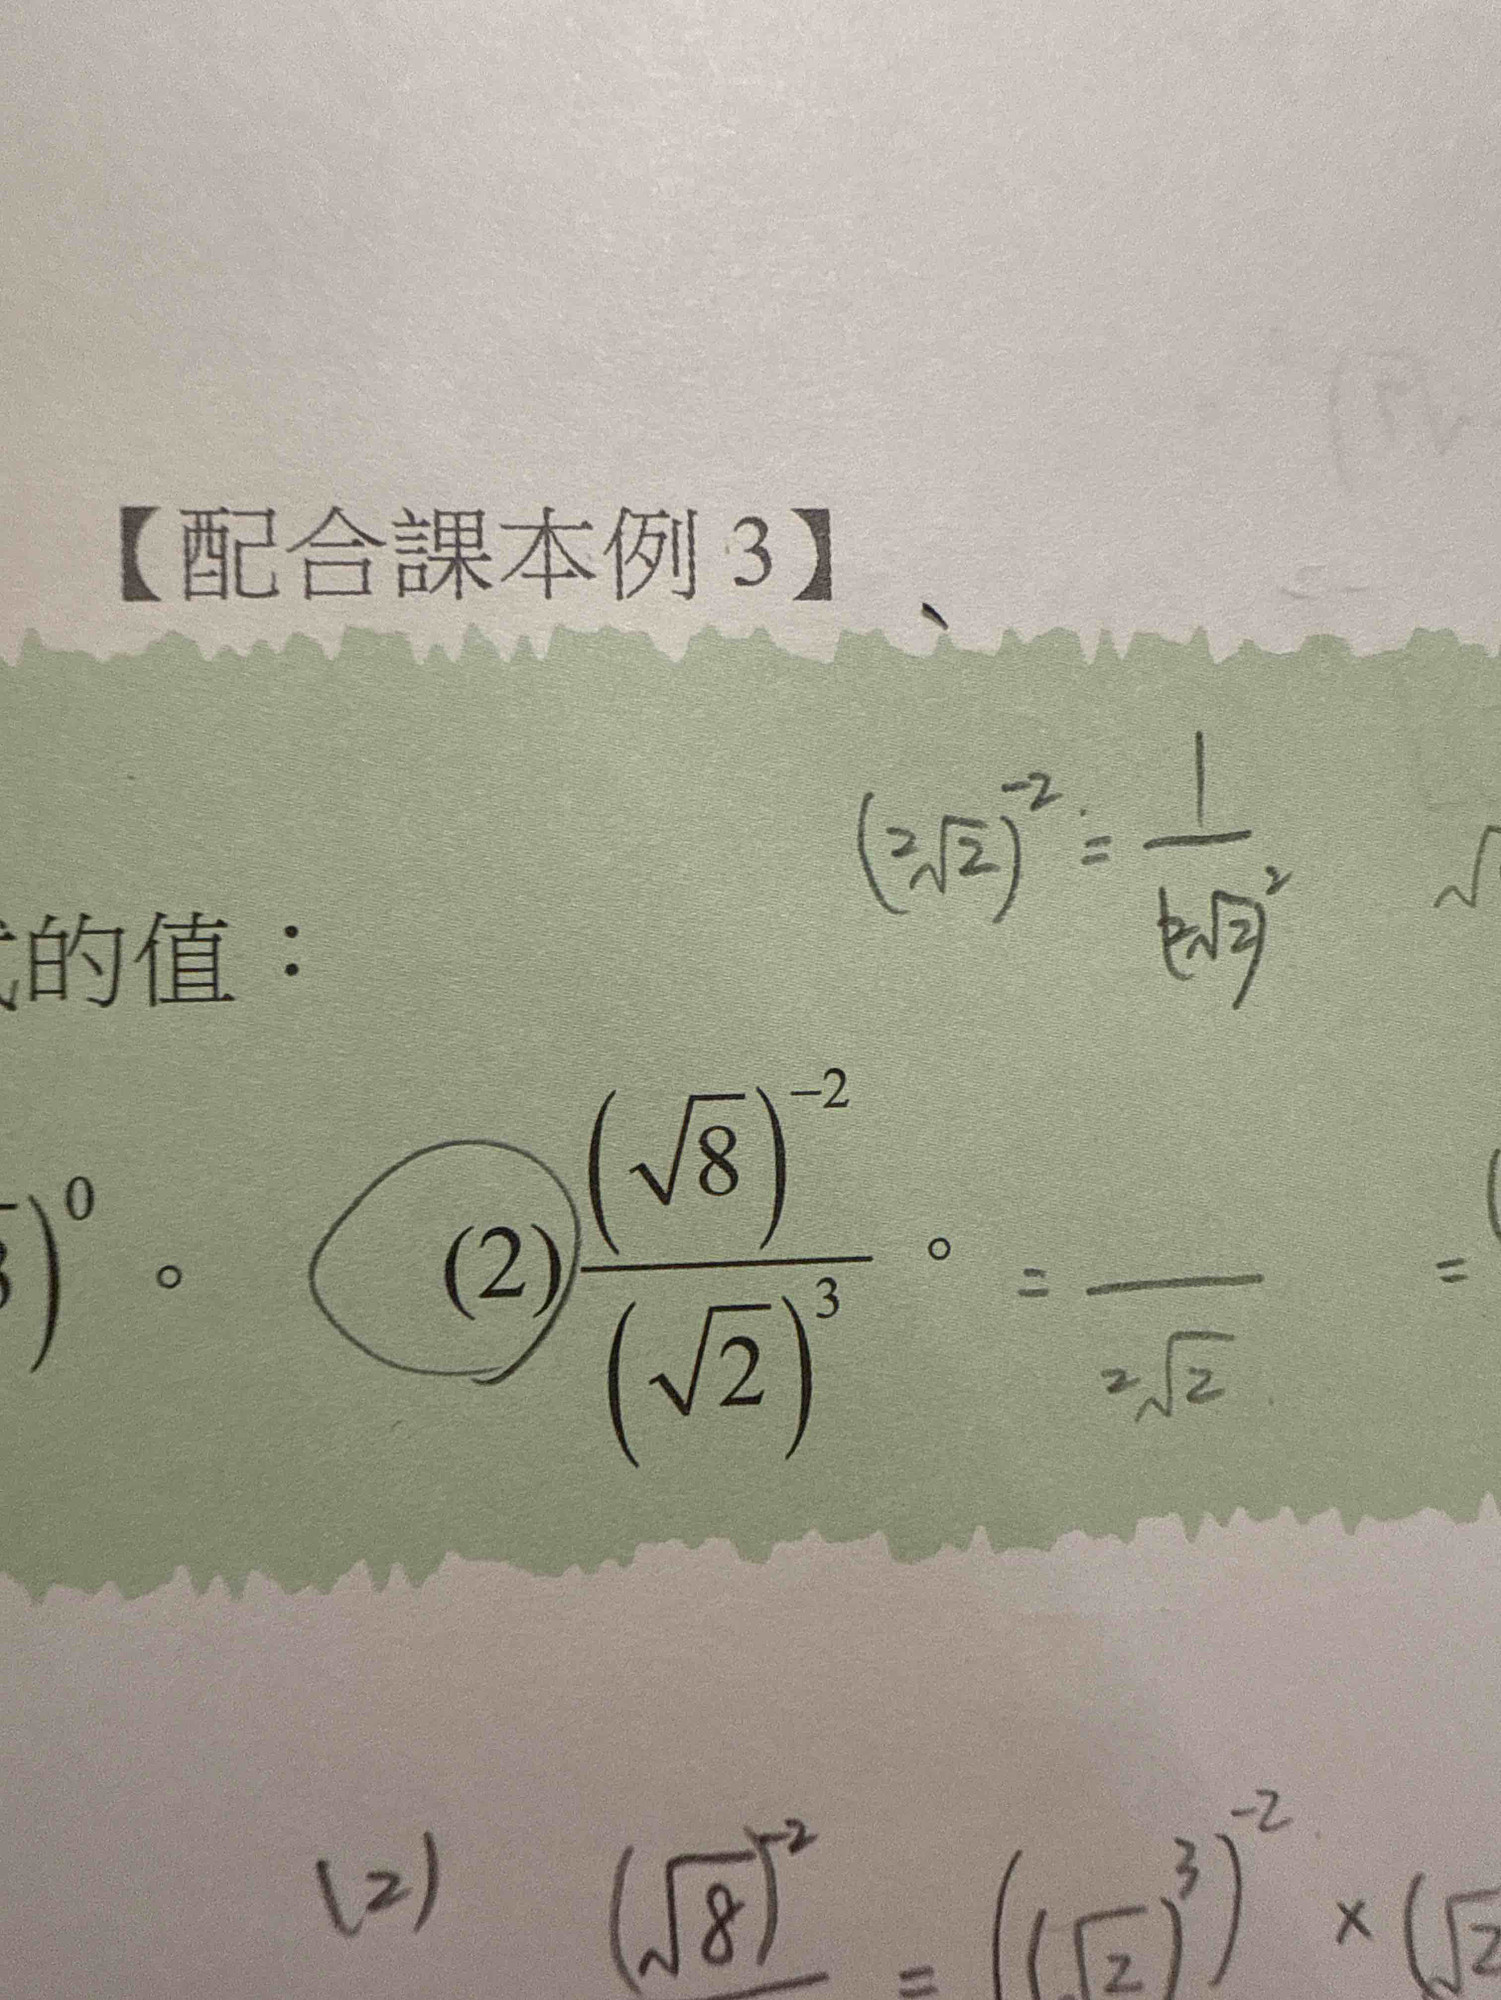 【配合課本例 3】
(2√2)^-2 = 1/(2√2)^2
的值：
)^0。 (2) (√8)^-2/(√2)^3。 = /2√2 =
(2) (√8)^-2 = ((√2)^3)^-2 × (√2